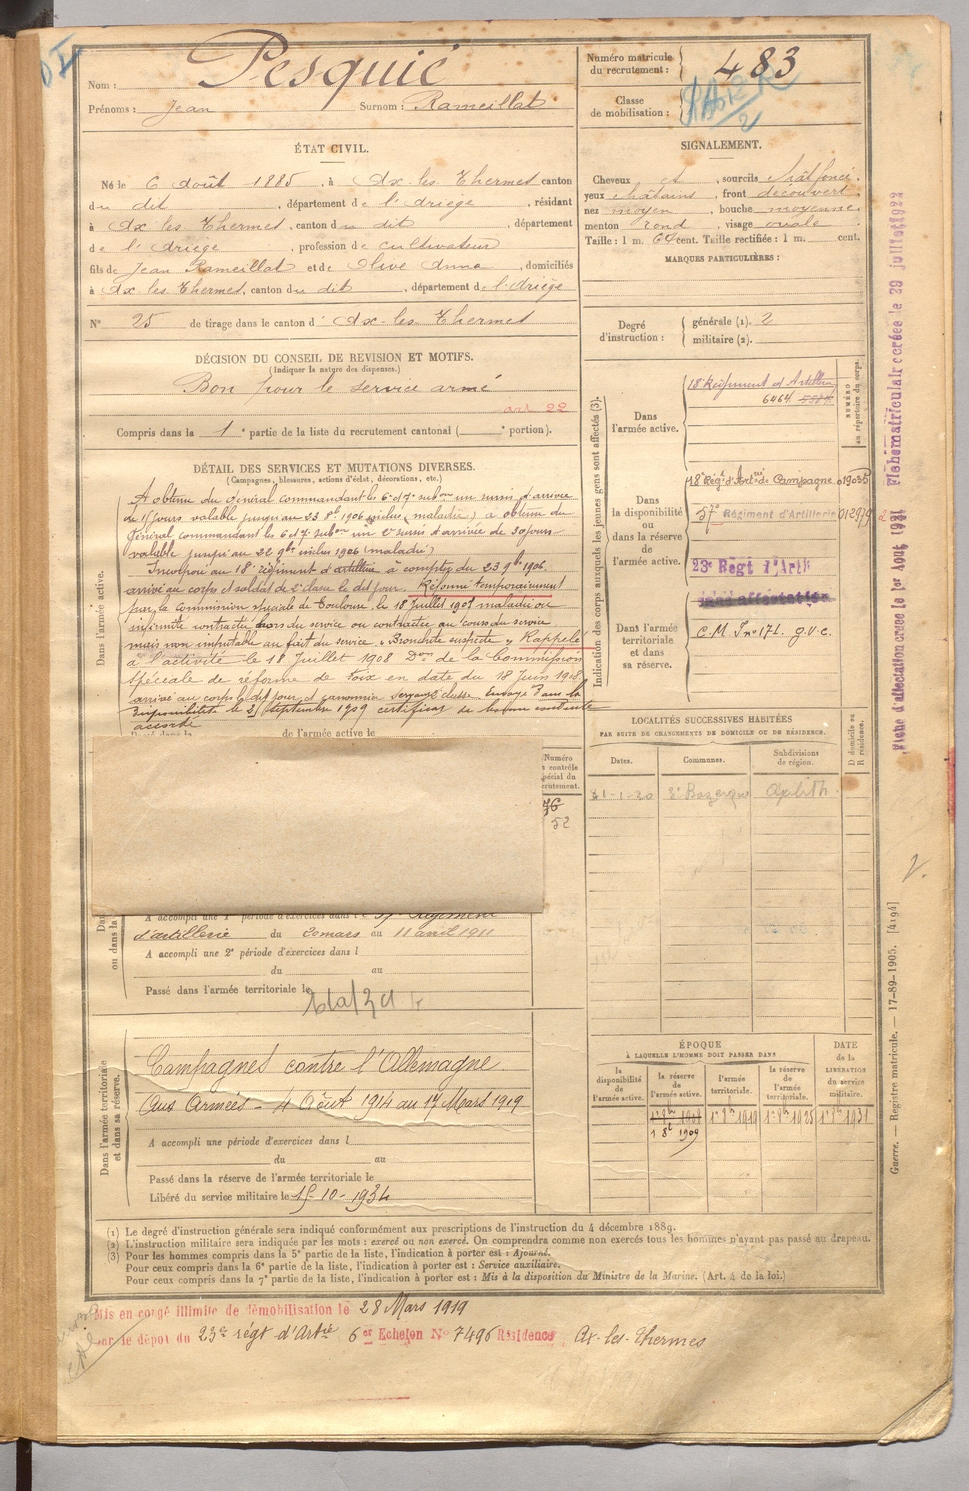 Nom : Pesquié
Prénoms : Jean Surnom : Rameillat
ÉTAT CIVIL.
Né le 6 août 1885, à Ax-les-Thermes canton
du dit, département de l'Ariège, résidant
à Ax les Thermes, canton du dit, département
de l'Ariège, profession de cultivateur
fils de Jean Rameillat et de Olive Anna, domiciliés
à Ax les Thermes, canton du dit, département de l'Ariège
N° 25 de tirage dans le canton d' Ax-les-Thermes
DÉCISION DU CONSEIL DE REVISION ET MOTIFS.
(Indiquer la nature des dispenses.)
Bon pour le service armé
art 22
Compris dans la 1e partie de la liste du recrutement cantonal ( e portion).
Numéro matricule du recrutement : 483
Classe de mobilisation :
SIGNALEMENT.
Cheveux ct, sourcils chât foncé.
yeux châtains, front découvert
nez moyen, bouche moyenne
menton rond, visage ovale
Taille : 1 m. 64 cent. Taille rectifiée : 1 m. cent.
MARQUES PARTICULIÈRES :
Degré d'instruction : générale (1). 2
militaire (2).
DÉTAIL DES SERVICES ET MUTATIONS DIVERSES.
(Campagnes, blessures, actions d'éclat, décorations, etc.)
Dans l'armée active.
A obtenu du général commandant les 6 et 7e subon un sursis d'arrivée
de 15 jours valable jusqu'au 23 8b 1906 inclus (maladie) a obtenu du
général commandant les 6 et 7e subon un 2e sursis d'arrivée de 30 jours
valable jusqu'au 22 9bre inclus 1906 (maladie)
Incorporé au 18e régiment d'artillerie à compter du 23 9b 1906.
arrivé au corps et soldat de 2e classe le dit jour. Réformé temporairement
par la Commission spéciale de Toulouse, le 18 Juillet 1907 maladie ou
infirmité contractée hors du service ou contractée au cours du service
mais non imputable au fait du service « Bronchite suspecte » Rappelé
à l'activité le 18 Juillet 1908 Don de la Commission
spéciale de réforme de Foix en date du 18 Juin 1908
arrivé au corps le dit jour et canonnier servant 2e classe. Envoyé dans la
disponibilité le 25 septembre 1909 certificat de bonne conduite
accordé
de l'armée active le
Numéro
contrôle
spécial du
recrutement.
52
Indication des corps auxquels les jeunes gens sont affectés (3).
Dans l'armée active.
18e Régiment d'Artillerie
6464
NUMÉRO au répertoire du corps.
Dans la disponibilité ou dans la réserve de l'armée active.
18e Régt d'Artrie de Campagne 019035
57e Régiment d'Artillerie 012979
23e Regt d'Artie
Dans l'armée territoriale et dans sa réserve.
sans affectation
C.M. J no 171. G.V.C.
LOCALITÉS SUCCESSIVES HABITÉES
PAR SUITE DE CHANGEMENTS DE DOMICILE OU DE RÉSIDENCE.
Dates. Communes. Subdivisions de région. D domicile ou R résidence.
1-1-20
A accompli une 1e période d'exercices dans l 57e Régiment
d'artillerie du 20 mars au 11 avril 1911
A accompli une 2e période d'exercices dans l
du au
Passé dans l'armée territoriale le
Dans l'armée territoriale et dans sa réserve.
Campagnes contre l'Allemagne
Aux Armées - 4 Août 1914 au 17 Mars 1919
A accompli une période d'exercices dans l
du au
Passé dans la réserve de l'armée territoriale le
Libéré du service militaire le 15-10-1934
ÉPOQUE
À LAQUELLE L'HOMME DOIT PASSER DANS
la disponibilité de l'armée active. la réserve de l'armée active. l'armée territoriale. la réserve de l'armée territoriale.
DATE de la LIBÉRATION du service militaire.
1er 8b 1909
(1) Le degré d'instruction générale sera indiqué conformément aux prescriptions de l'instruction du 4 décembre 1889.
(2) L'instruction militaire sera indiquée par les mots : exercé ou non exercé. On comprendra comme non exercés tous les hommes n'ayant pas passé au drapeau.
(3) Pour les hommes compris dans la 5e partie de la liste, l'indication à porter est : Ajourné.
Pour ceux compris dans la 6e partie de la liste, l'indication à porter est : Service auxiliaire.
Pour ceux compris dans la 7e partie de la liste, l'indication à porter est : Mis à la disposition du Ministre de la Marine. (Art. 4 de la loi.)
Mis en congé illimité de démobilisation le 28 Mars 1919
par le dépôt du 23e régt d'Artie 6er Echelon No 7496 Résidence Ax-les-Thermes
Guerre. — Registre matricule. — 17-89-1905. [4194]
Fiche d'affectation créée le 1er Août 1921 Fiche matriculaire créée le 29 juillet 1922